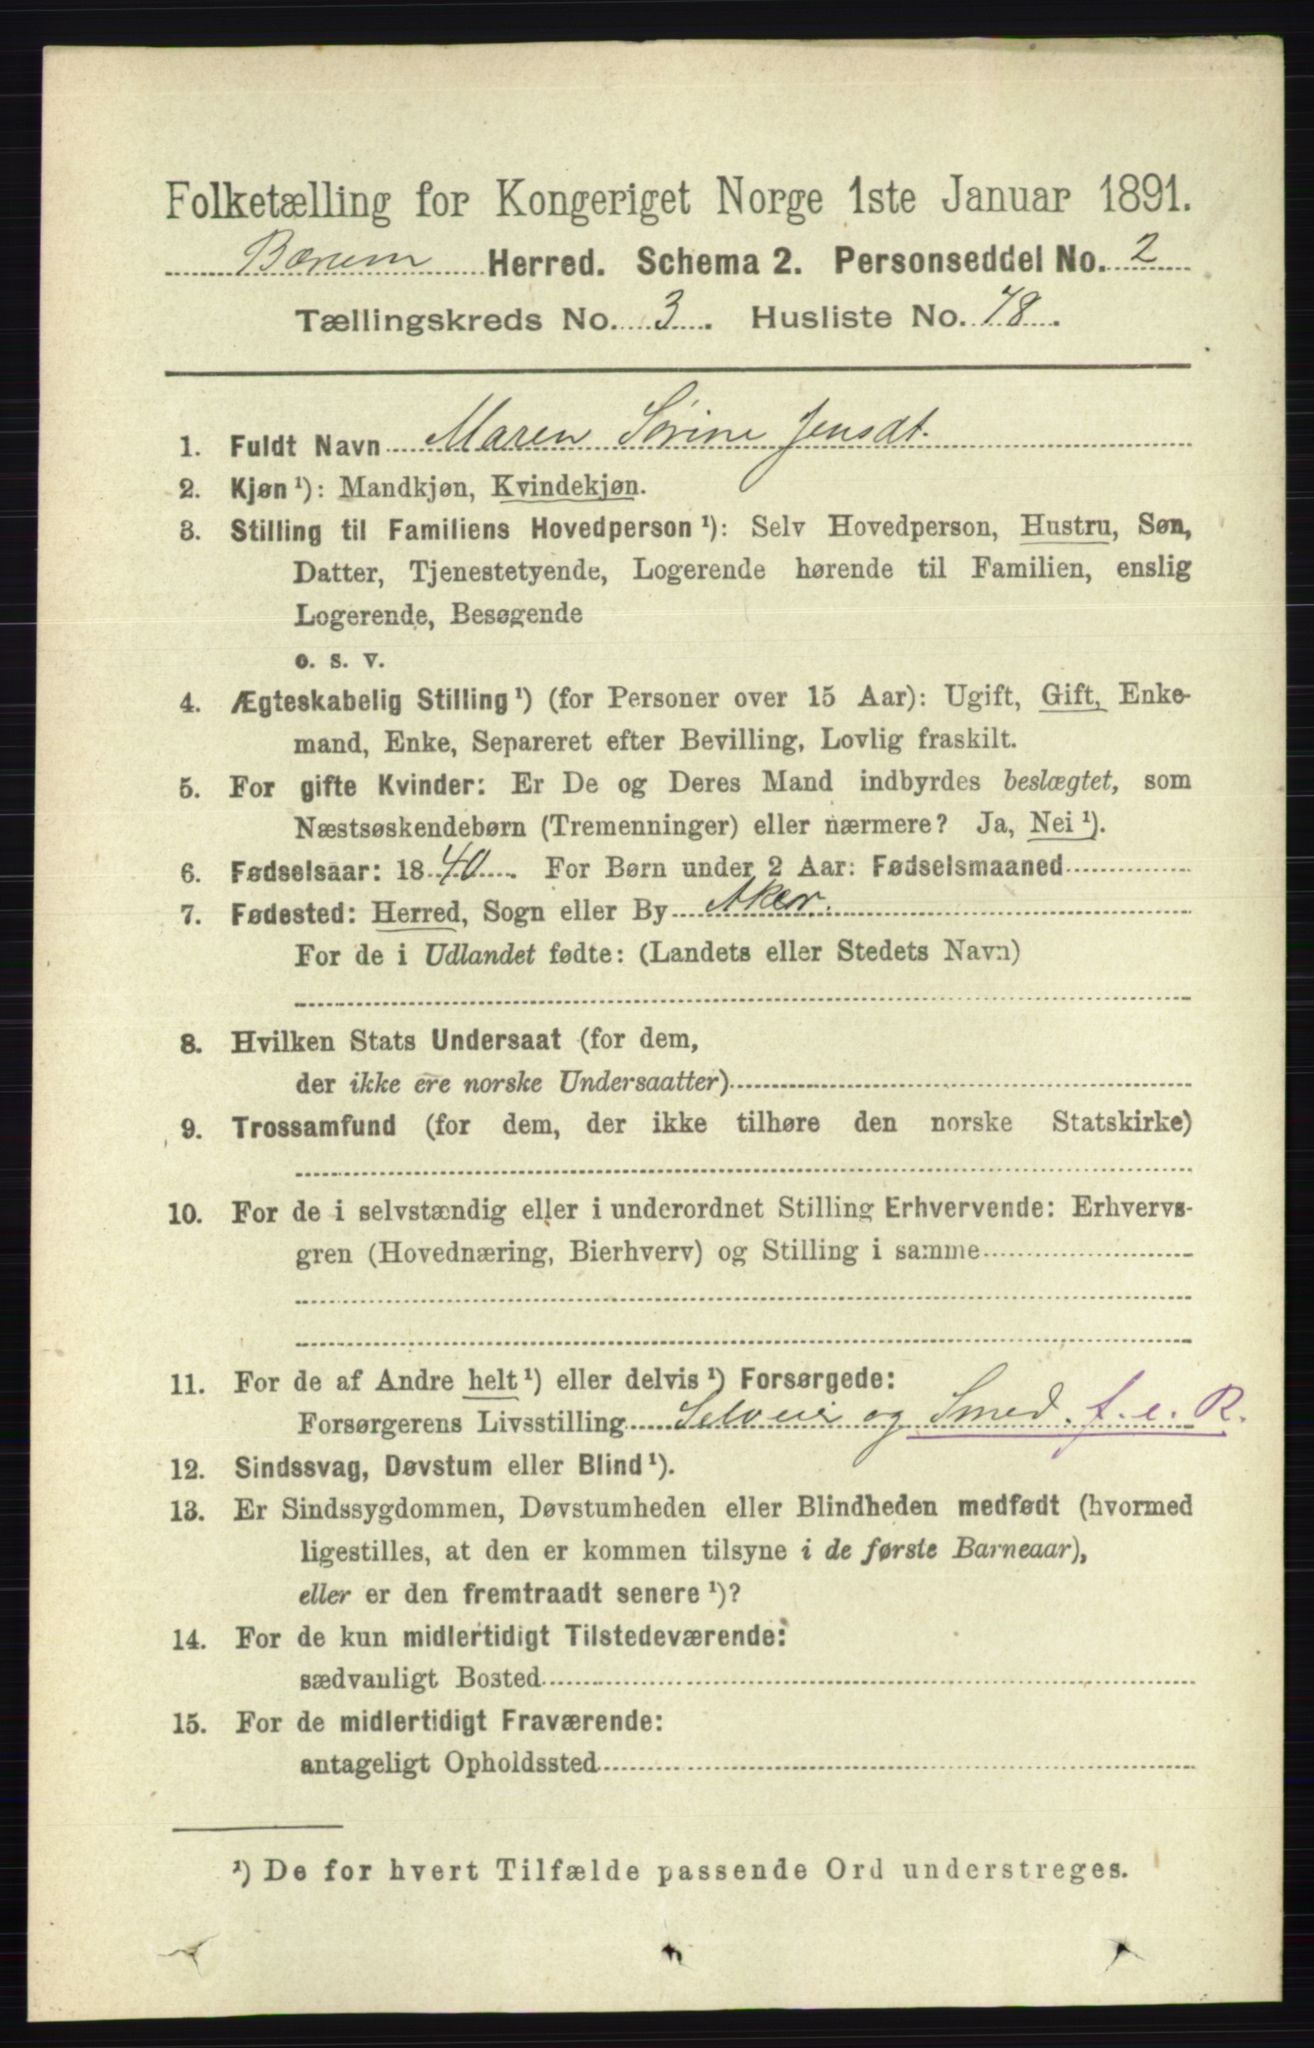 Folketælling for Kongeriget Norge 1ste Januar 1891.
Bærum Herred. Schema 2. Personseddel No. 2
Tællingskreds No. 3. Husliste No. 78.
1. Fuldt Navn Maren Sørine Jensdt.
2. Kjøn ¹): Mandkjøn, Kvindekjøn.
3. Stilling til Familiens Hovedperson ¹): Selv Hovedperson, Hustru, Søn,
Datter, Tjenestetyende, Logerende hørende til Familien, enslig
Logerende, Besøgende
o. s. v.
4. Ægteskabelig Stilling ¹) (for Personer over 15 Aar): Ugift, Gift, Enke-
mand, Enke, Separeret efter Bevilling, Lovlig fraskilt.
5. For gifte Kvinder: Er De og Deres Mand indbyrdes beslægtet, som
Næstsøskendebørn (Tremenninger) eller nærmere? Ja, Nei ¹).
6. Fødselsaar: 1840. For Børn under 2 Aar: Fødselsmaaned
7. Fødested: Herred, Sogn eller By Aker.
For de i Udlandet fødte: (Landets eller Stedets Navn)
8. Hvilken Stats Undersaat (for dem,
der ikke ere norske Undersaatter)
9. Trossamfund (for dem, der ikke tilhøre den norske Statskirke)
10. For de i selvstændig eller i underordnet Stilling Erhvervende: Erhvervs-
gren (Hovednæring, Bierhverv) og Stilling i samme
11. For de af Andre helt ¹) eller delvis ¹) Forsørgede:
Forsørgerens Livsstilling Selveier og Smed. f. e. R.
12. Sindssvag, Døvstum eller Blind ¹).
13. Er Sindssygdommen, Døvstumheden eller Blindheden medfødt (hvormed
ligestilles, at den er kommen tilsyne i de første Barneaar),
eller er den fremtraadt senere ¹)?
14. For de kun midlertidigt Tilstedeværende:
sædvanligt Bosted
15. For de midlertidigt Fraværende:
antageligt Opholdssted
¹) De for hvert Tilfælde passende Ord understreges.